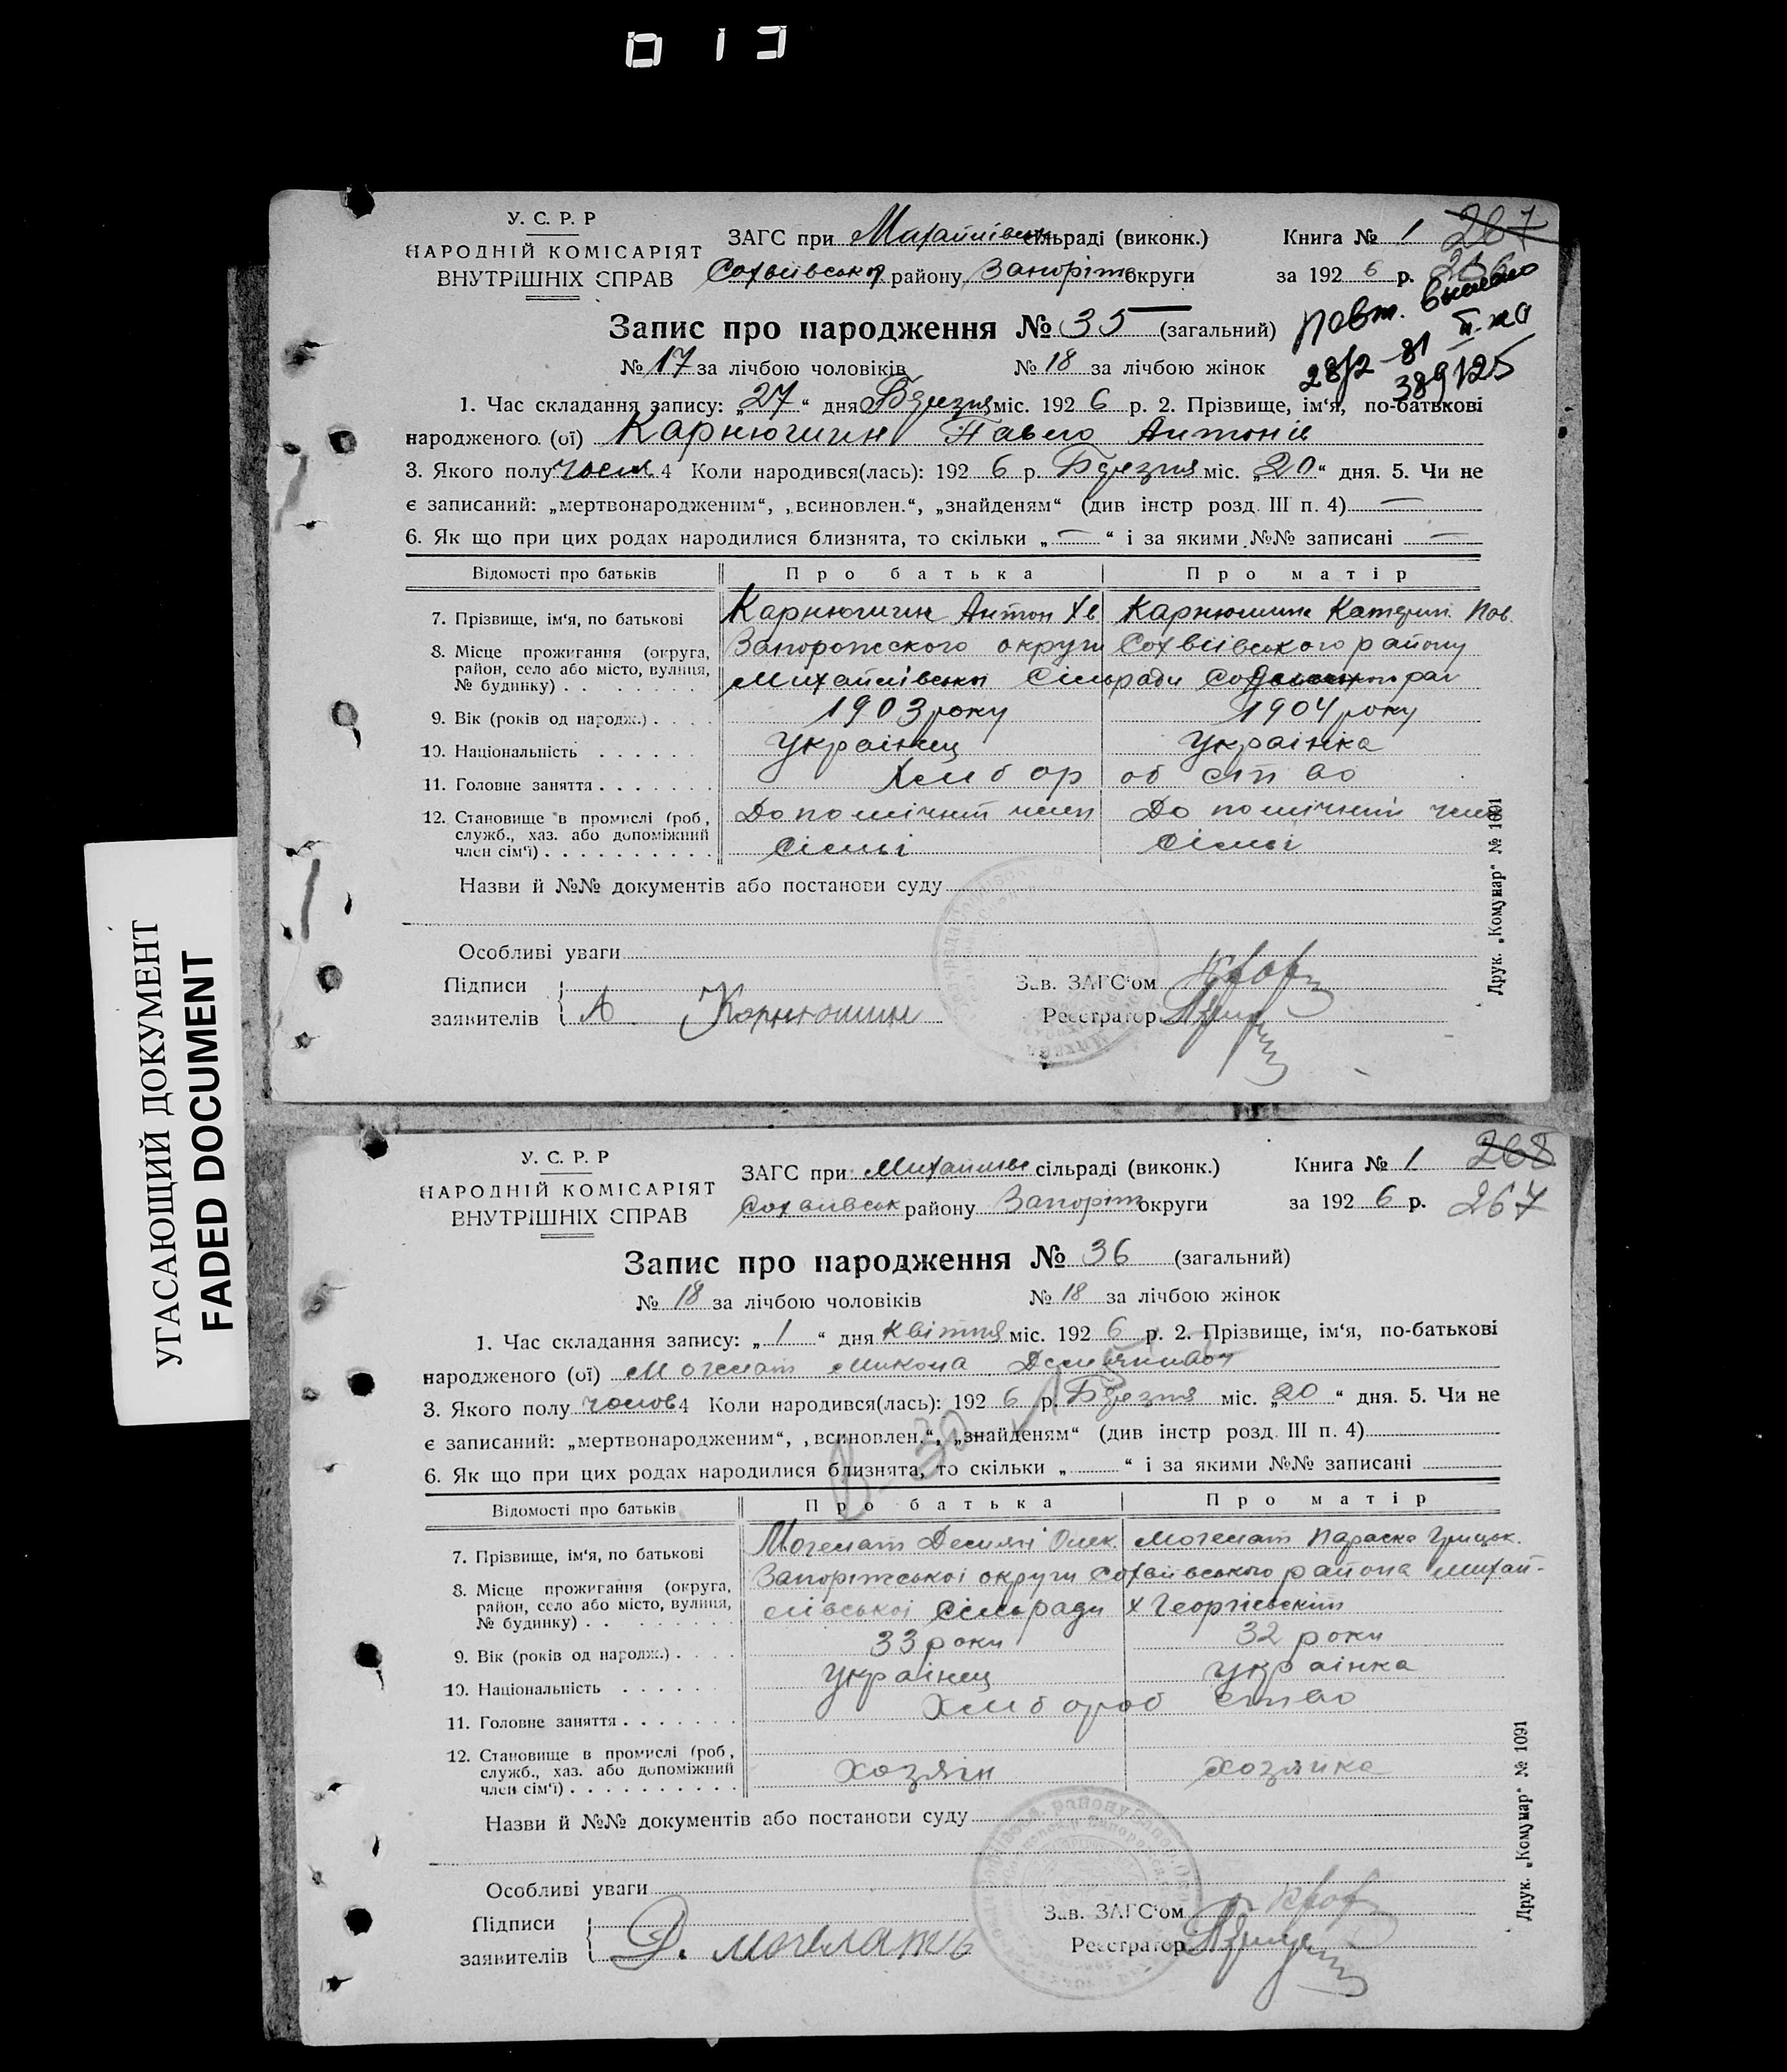 У. С. Р. Р
НАРОДНІЙ КОМІСАРІЯТ
ВНУТРІШНІХ СПРАВ
ЗАГС при Михайлівськ сільраді (виконк.)
Книга № 1 267
района Запоріж округи
за 192 6 р. 266
Запис про народження № 35 (загальний)
повт.
28/2-81
389125
№ 17 за лічбою чоловіків № 18 за лічбою жінок
1. Час складання запису: „27“ дня Березня міс. 192 6 р. 2. Прізвище, ім‘я, по-батькові
народженого (ої) Карнюшин Павло Антонів
3. Якого полу чолов 4 Коли народився(лась): 192 6 р. Березня міс. „20“ дня. 5. Чи не
є записаний: „мертвонародженим“, „всиновлен.“, „знайденям“ (див інстр розд. III п. 4) —
6. Як що при цих родах народилися близнята, то скільки „—“ і за якими №№ записані —
Відомості про батьків Про батька Про матір
7. Прізвище, ім‘я, по батькові Карнюшин Антон Хв Карнюшина Катерин. Пав.
8. Місце прожигання (округа, район, село або місто, вулиця, № будинку) Запорожского округи района
Михайлівськоі Сільради
9. Вік (років од народж.) 1903 року 1904 року
10. Національність Украінец Украінка
11. Головне заняття Хлибор об ство
12. Становище в промислі (роб., служб., хаз. або допоміжний член сім‘ї) Допомічний член Допомічний член
Сісмьі Сісмьі
Назви й №№ документів або постанови суду
Особливі уваги
Підписи
заявителів А Карнюшин
Зав. ЗАГС‘ом
Реєстратор
Друк. „Комунар“ № 1091
У. С. Р. Р
НАРОДНІЙ КОМІСАРІЯТ
ВНУТРІШНІХ СПРАВ
ЗАГС при Михайлівс сільраді (виконк.)
Книга № 1 268
району Запоріж округи
за 192 6 р. 267
Запис про народження № 36 (загальний)
№ 18 за лічбою чоловіків № 18 за лічбою жінок
1. Час складання запису: „1“ дня Квітня міс. 192 6 р. 2. Прізвище, ім‘я, по-батькові
народженого (ої) Могелат Микола Демянивоч
3. Якого полу чолов 4 Коли народився(лась): 192 6 р. Березня міс. „20“ дня. 5. Чи не
є записаний: „мертвонародженим“, „всиновлен.“, „знайденям“ (див інстр розд. III п. 4)
6. Як що при цих родах народилися близнята, то скільки „ “ і за якими №№ записані
Відомості про батьків Про батька Про матір
7. Прізвище, ім‘я, по батькові Могелат Демяні Олек. Могелат Параска Грицьк.
8. Місце прожигання (округа, район, село або місто, вулиця, № будинку) Запоріжськоі округи района Михай-
лівськоі Сільради х Георгієвскит
9. Вік (років од народж.) 33 роки 32 роки
10. Національність Украінец Украінка
11. Головне заняття Хлибороб ство
12. Становище в промислі (роб., служб., хаз. або допоміжний член сім‘ї) Хозяін Хозяйка
Назви й №№ документів або постанови суду
Особливі уваги
Підписи
заявителів Д. Могелать
Зав. ЗАГС‘ом
Реєстратор
Друк. „Комунар“ № 1091
УГАСАЮЩИЙ ДОКУМЕНТ
FADED DOCUMENT